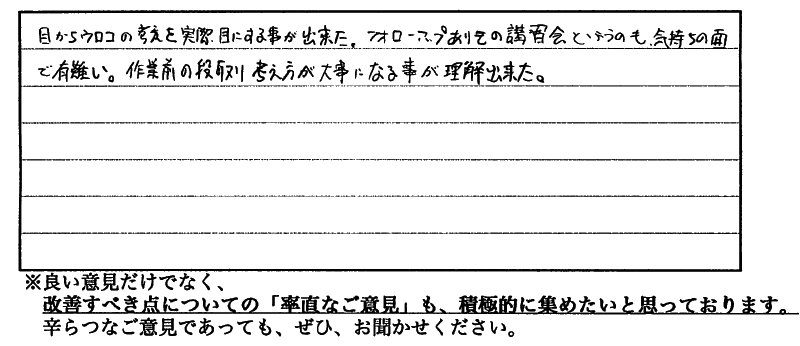 目からウロコの考えを実際目にする事が出来た。フォローアップありきの講習会というのも、気持ちの面
で有難い。作業前の段取り考え方が大事になる事が理解出来た。
※良い意見だけでなく、
改善すべき点についての「率直なご意見」も、積極的に集めたいと思っております。
辛らつなご意見であっても、ぜひ、お聞かせください。